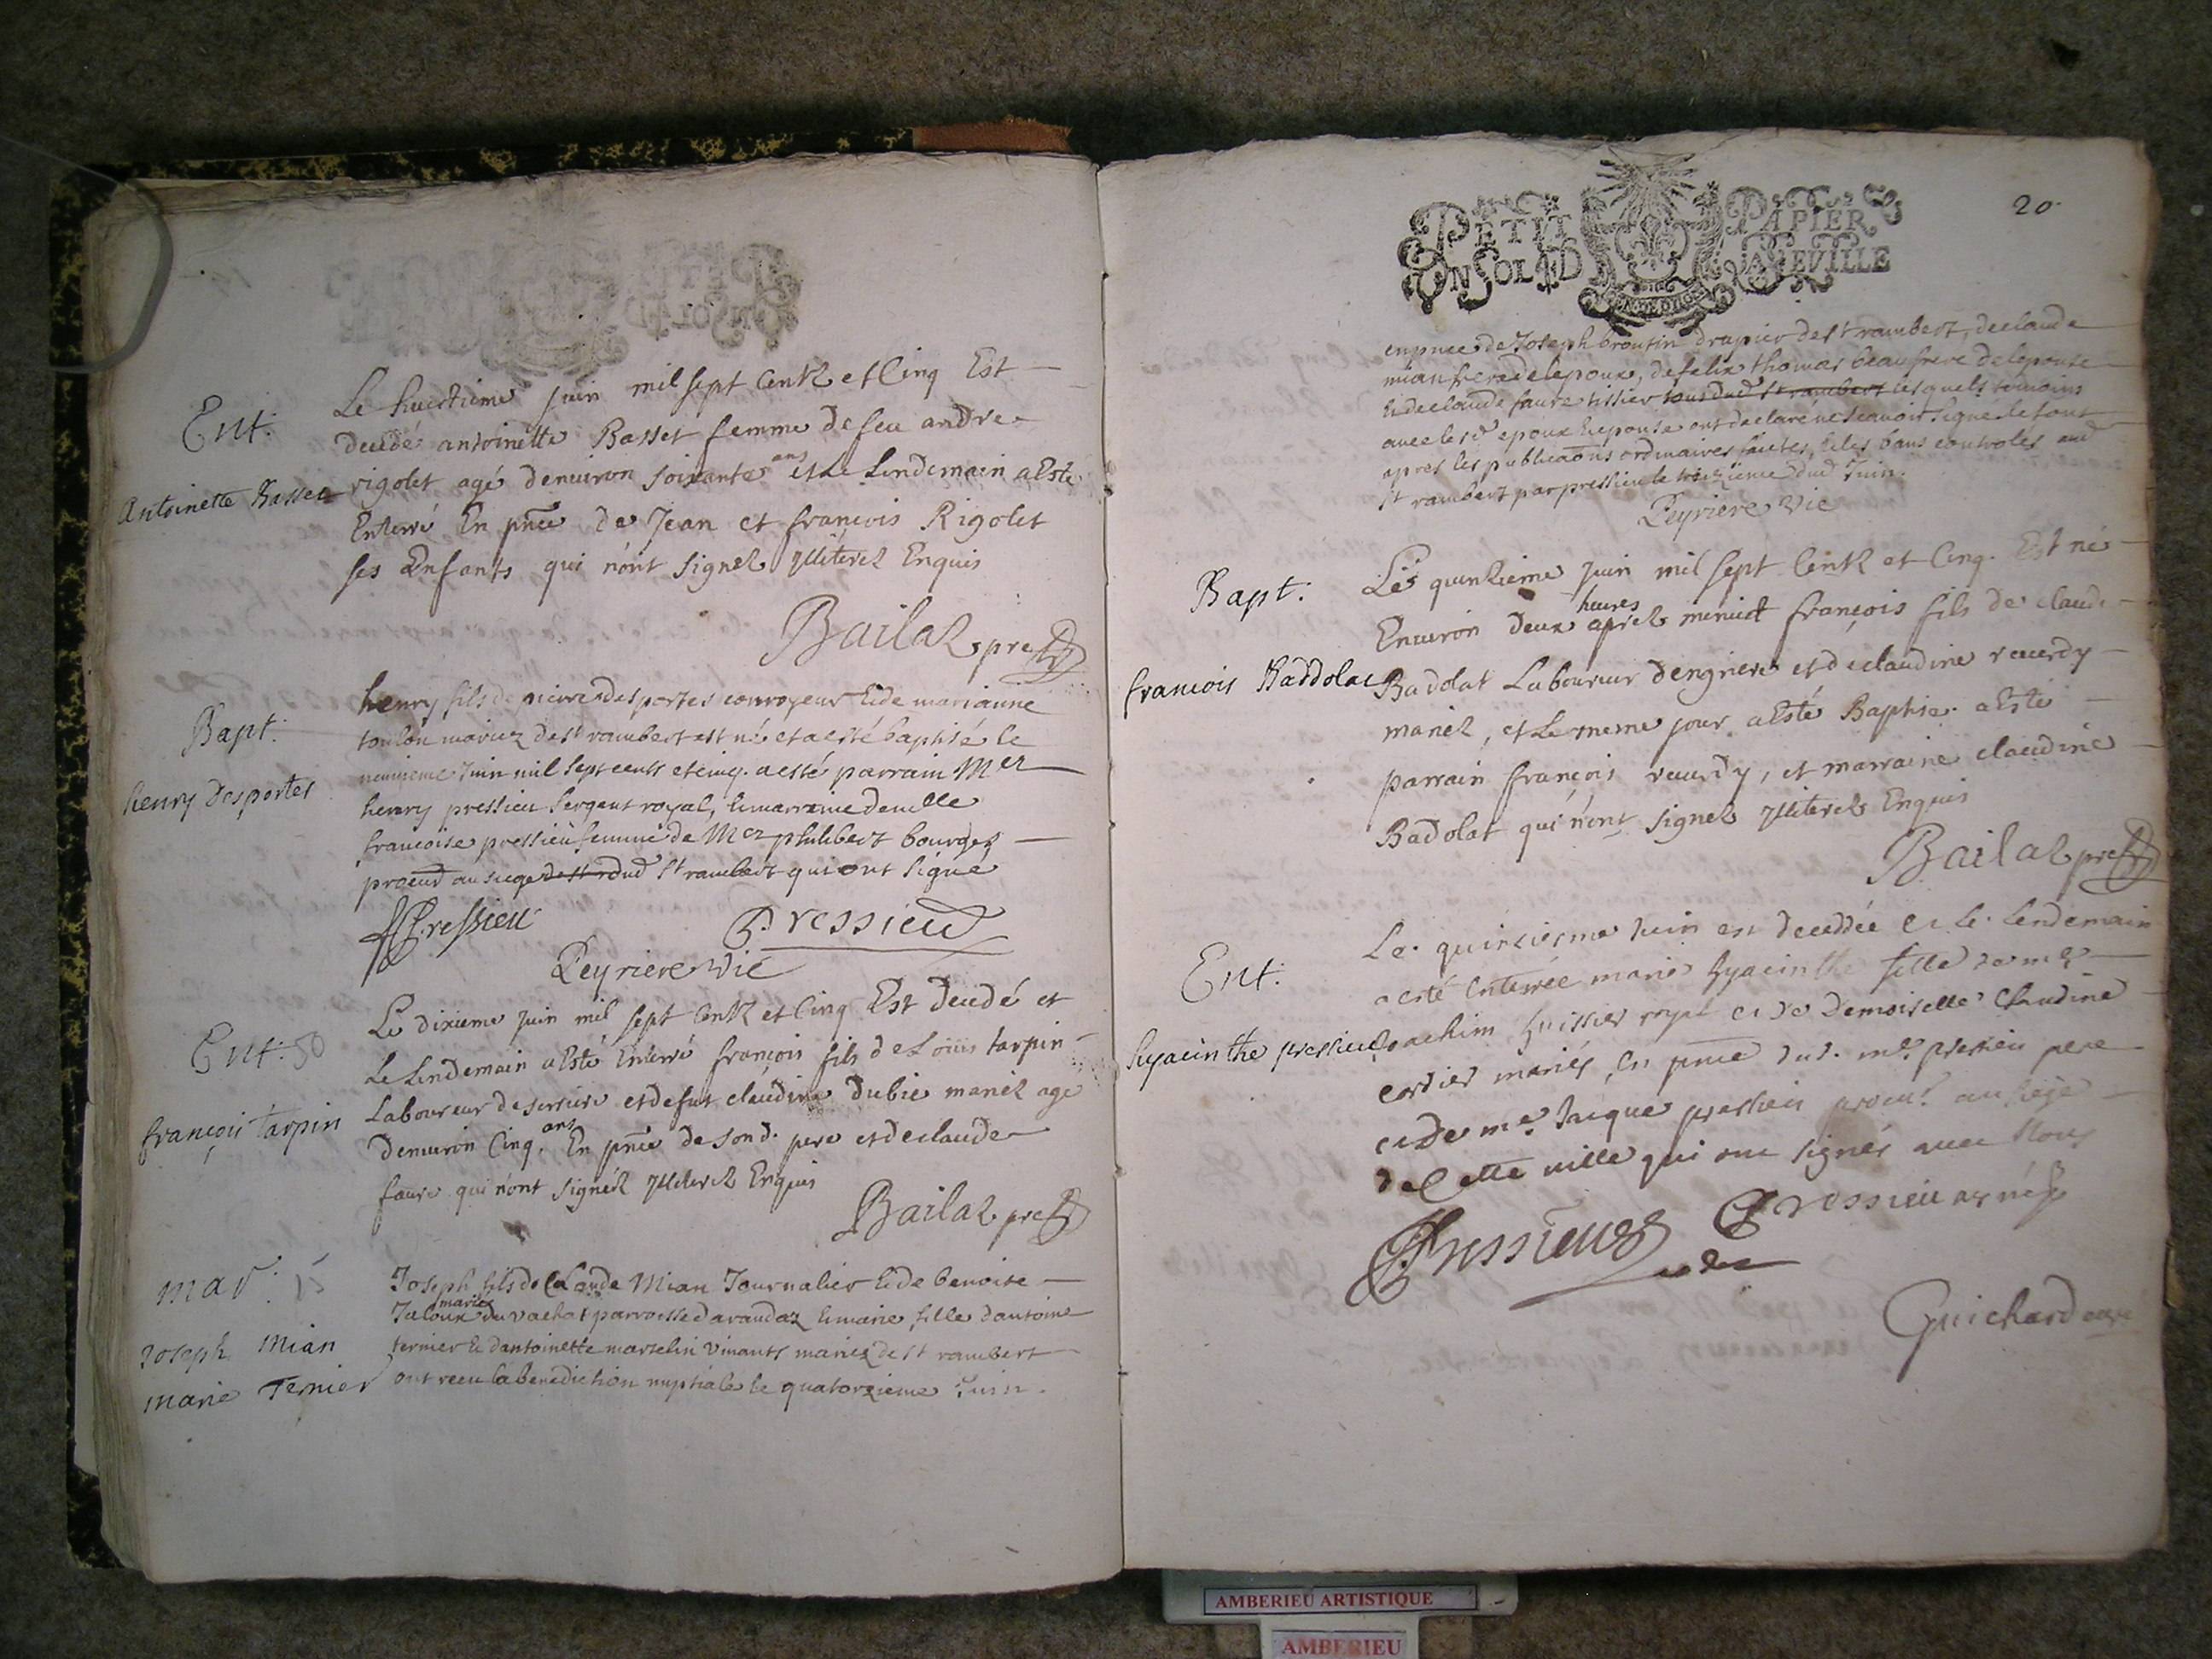 Ent.
Antoinette Basset
Le huictieme juin mil sept Centz et Cinq Est
decedé antoinette Basset femme de feu andre
rigolet agé denuiron soixante ans et le Lendemain a Esté
Enterré En pñce de Jean et françois Rigolet
ses Enfants qui nónt signez Illiterez Enquis
Bailaz pre
Bapt.
henry Desportes
henry fils de pierre desportes conroyeur & de marianne
toulon mariez de st rambert est né et a esté baptisé le
neuuieme Juin mil sept cents et cinq. a esté parrain Mer
henry pressieu sergent royal, & marraine demlle
francoise pressieu femme de Mer philibert bourges
procur au siege de st r dud st rambert qui ont signé
Pressieu Pressieu
Peyriere vic
Ent.
françois tarpin
Le dixieme juin mil sept Centz et Cinq Est decedé et
Le Lendemain a Esté Enterré françois fils de Louis tarpin
Laboureur de serriere et de fut claudine dubie mariez agé
denuiron Cinq ans En pñce de son d. pere et de claude
faure qui nónt signéz Illiterez Enquis
Bailaz pre
mar.
Joseph Mian
marie Ternier
Joseph fils de Claude Mian Journalier & de benoite
Jaloux mariez du vachat parroisse darandaz & marie fille dantoine
ternier & dantoinette marcelin viuants mariez de st rambert
ont receu la benediction nuptiale le quatorzieme Juin.
20
PETIT PAPIER
UN SOL D LA FEUILLE
en pnce de Joseph broutin drapier de st rambert, de claude
mian frere de lepoux, de felix thomas beaufrere de lepouse
& de claude faure tissier tous dud st rambert lesquels temoins
auec lesd epoux & epouse ont declaré ne scauoir signé le tout
apres les publicaons ordinaires faites, & les bans controlés aud
st rambert par pressieu le treizieme dud Juin.
Peyriere vic
Bapt.
francois Baddolat
Le quinzieme juin mil sept Centz et Cinq. Est né
Enuiron deux heures aprez minuit françois fils de claude
Badolat Laboureur dengrieres et de claudine reuerdy
mariez, et Le meme jour a Esté Baptisé. a Esté
parrain françois reuerdy, et marraine claudine
Badolat qui nónt signez Illiterez Enquis
Bailaz pre
Ent.
hyacinthe pressieu
Le quinziesme juin est deceddée et le lendemain
a esté Enterrée marie hyacinthe fille de me
Joachim huissier royal et de Demoiselle Claudine
cortier mariés, en pnce dud. me pressieu pere
et de me Jacque pressieu procur au siege
de Cette uille qui ont signés auec Nous
Pressieu Pressieu
Guichard curé
AMBERIEU ARTISTIQUE
AMBERIEU